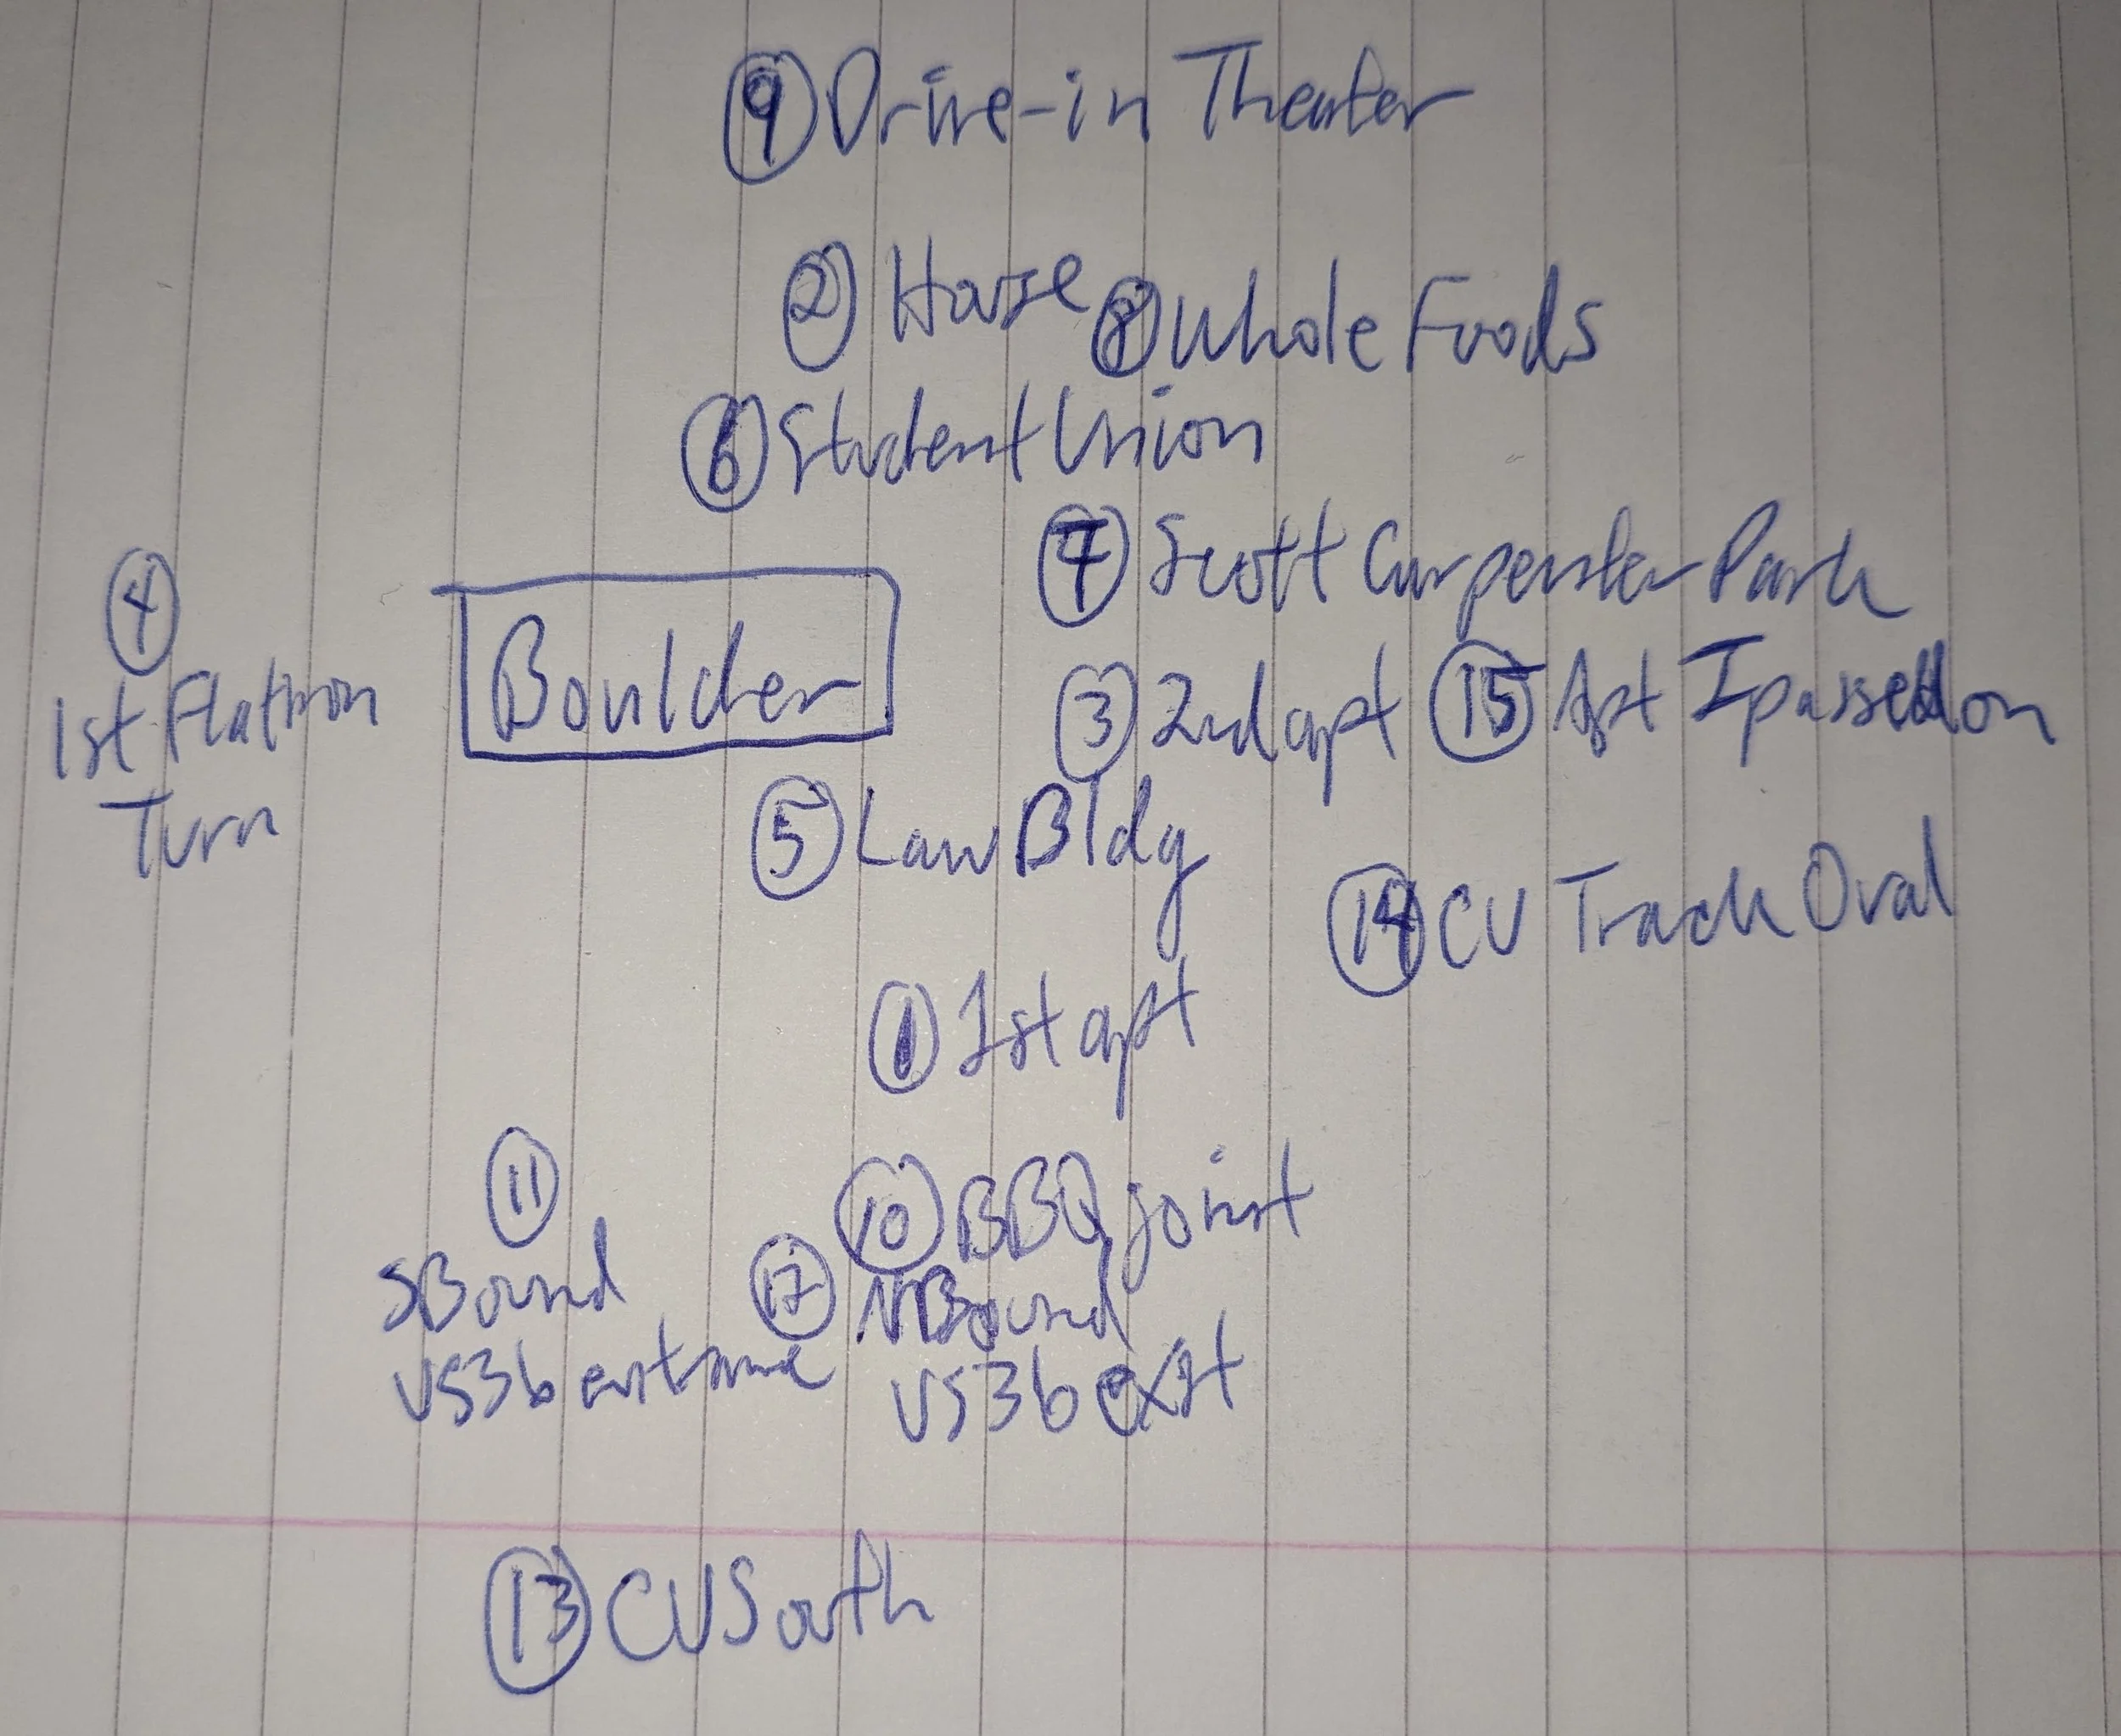 9 Drive-in Theater
2 House
8 Whole Foods
6 Student Union
7 Scott Carpenter Park
4
1st Flatiron
Turn
Boulder
3 2nd apt
15 Apt I passed on
5 Law Bldg
14 CU Track Oval
1 1st apt
11
SBound
US36 entrance
10 BBQ joint
12 NBound
US36 exit
13 CU South